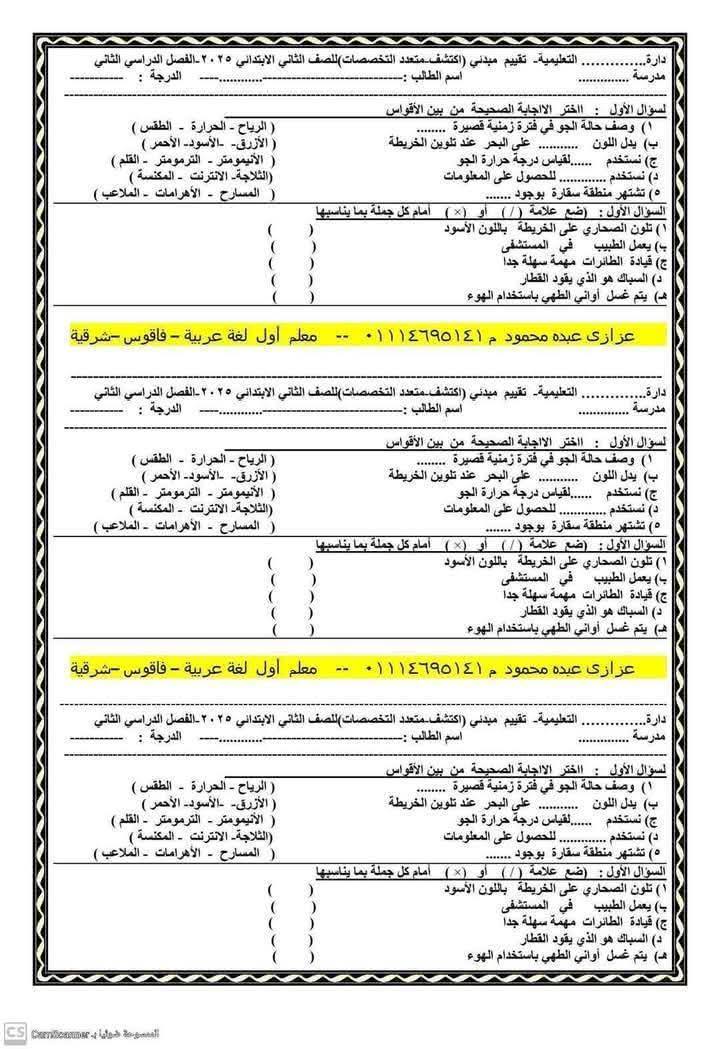 دارة.............. التعليمية- تقييم مبدئي (اكتشف-متعدد التخصصات)للصف الثاني الابتدائي ٢٠٢٥-الفصل الدراسي الثاني
مدرسة .............. اسم الطالب :-----------------------------............---- الدرجة : -----------
لسؤال الأول : ااختر الااجابة الصحيحة من بين الأقواس
١) وصف حالة الجو في فترة زمنية قصيرة ........ ( الرياح - الحرارة - الطقس )
ب) يدل اللون ........... على البحر عند تلوين الخريطة ( الأزرق- -الأسود- الأحمر )
ج) نستخدم ......لقياس درجة حرارة الجو ( الأنيمومتر - الترمومتر - القلم )
د) نستخدم ............. للحصول على المعلومات (الثلاجة- الانترنت - المكنسة )
٥) تشتهر منطقة سقارة بوجود ....... ( المسارح - الأهرامات - الملاعب )
السؤال الأول : (ضع علامة ( / ) أو ( × ) أمام كل جملة بما يناسبها
١) تلون الصحاري على الخريطة باللون الأسود ( )
ب) يعمل الطبيب في المستشفى ( )
ج) قيادة الطائرات مهمة سهلة جدا ( )
د) السباك هو الذي يقود القطار ( )
هـ) يتم غسل أواني الطهي باستخدام الهوء ( )
عزازى عبده محمود م ٠١١١٤٦٩٥١٤١ -- معلم أول لغة عربية – فاقوس –شرقية
دارة.............. التعليمية- تقييم مبدئي (اكتشف-متعدد التخصصات)للصف الثاني الابتدائي ٢٠٢٥-الفصل الدراسي الثاني
مدرسة .............. اسم الطالب :-----------------------------............---- الدرجة : -----------
لسؤال الأول : ااختر الااجابة الصحيحة من بين الأقواس
١) وصف حالة الجو في فترة زمنية قصيرة ........ ( الرياح - الحرارة - الطقس )
ب) يدل اللون ........... على البحر عند تلوين الخريطة ( الأزرق- -الأسود- الأحمر )
ج) نستخدم ......لقياس درجة حرارة الجو ( الأنيمومتر - الترمومتر - القلم )
د) نستخدم ............. للحصول على المعلومات (الثلاجة- الانترنت - المكنسة )
٥) تشتهر منطقة سقارة بوجود ....... ( المسارح - الأهرامات - الملاعب )
السؤال الأول : (ضع علامة ( / ) أو ( × ) أمام كل جملة بما يناسبها
١) تلون الصحاري على الخريطة باللون الأسود ( )
ب) يعمل الطبيب في المستشفى ( )
ج) قيادة الطائرات مهمة سهلة جدا ( )
د) السباك هو الذي يقود القطار ( )
هـ) يتم غسل أواني الطهي باستخدام الهوء ( )
عزازى عبده محمود م ٠١١١٤٦٩٥١٤١ -- معلم أول لغة عربية – فاقوس –شرقية
دارة.............. التعليمية- تقييم مبدئي (اكتشف-متعدد التخصصات)للصف الثاني الابتدائي ٢٠٢٥-الفصل الدراسي الثاني
مدرسة .............. اسم الطالب :-----------------------------............---- الدرجة : -----------
لسؤال الأول : ااختر الااجابة الصحيحة من بين الأقواس
١) وصف حالة الجو في فترة زمنية قصيرة ........ ( الرياح - الحرارة - الطقس )
ب) يدل اللون ........... على البحر عند تلوين الخريطة ( الأزرق- -الأسود- الأحمر )
ج) نستخدم ......لقياس درجة حرارة الجو ( الأنيمومتر - الترمومتر - القلم )
د) نستخدم ............. للحصول على المعلومات (الثلاجة- الانترنت - المكنسة )
٥) تشتهر منطقة سقارة بوجود ....... ( المسارح - الأهرامات - الملاعب )
السؤال الأول : (ضع علامة ( / ) أو ( × ) أمام كل جملة بما يناسبها
١) تلون الصحاري على الخريطة باللون الأسود ( )
ب) يعمل الطبيب في المستشفى ( )
ج) قيادة الطائرات مهمة سهلة جدا ( )
د) السباك هو الذي يقود القطار ( )
هـ) يتم غسل أواني الطهي باستخدام الهوء ( )
CS الممسوحة ضوئيا بـ CamScanner